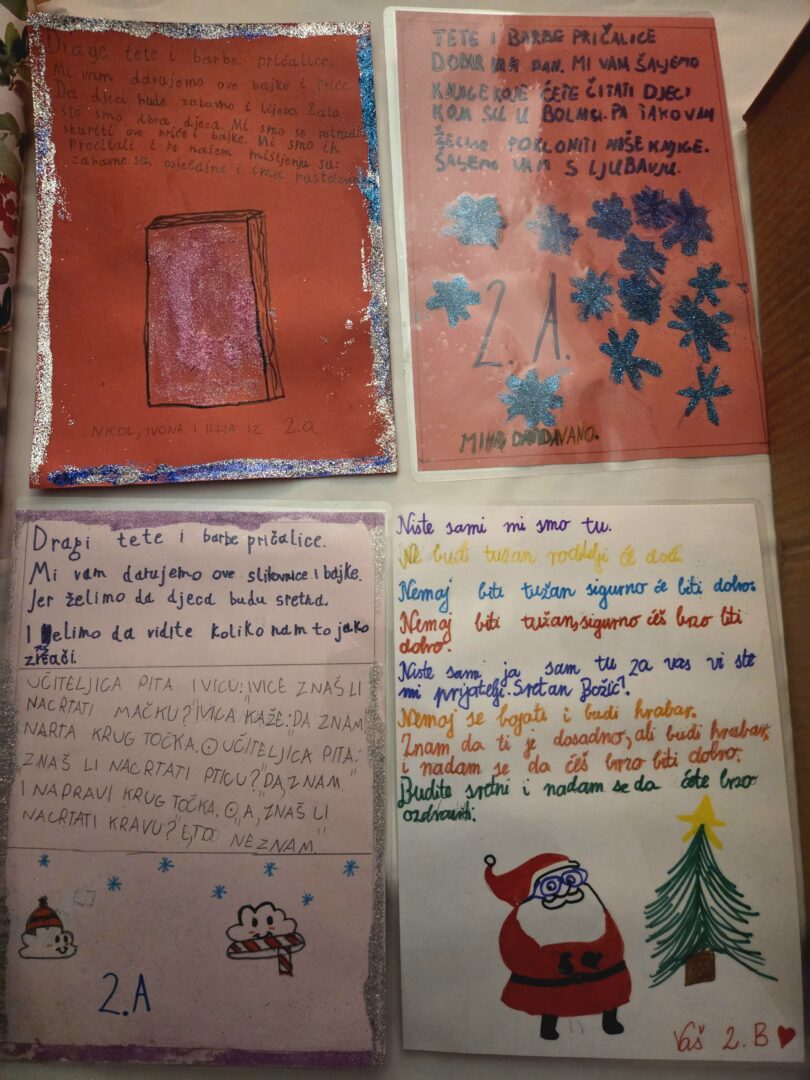 Drage tete i barbe pričalice.
Mi vam darujemo ove bajke i priče.
Da djeci bude zabavno i lijepo. Zato
što smo dbra djeca. Mi smo se potrudi
skupiti ove priče i bajke. Mi smo ih
pročitali i po našem mišljenju su:
zabavne su, osjećajne i ima pustolovin
NICOL, IVONA I ILLIA IZ 2.a
TETE I BARBE PRIČALICE
DOBAR VAM DAN. MI VAM ŠALJEMO
KNJIGE KOJE ĆETE ČITATI DJECI
KOJI SU U BOLNICI. PA TAKO VAM
ŽELIMO POKLONITI NAŠE KNJIGE.
ŠALJEMO VAM S LJUBAVLJU.
2. A.
Dragi tete i barbe pričalice.
Mi vam darujemo ove slikovnice i bajke.
Jer želimo da djeca budu sretna.
I želimo da vidite koliko nam to jako
znači.
UČITELJICA PITA IVICU: "IVICE ZNAŠ LI
NACRTATI MAČKU?" IVICA KAŽE: "DA ZNAM"
NARTA KRUG TOČKA. UČITELJICA PITA:
"ZNAŠ LI NACRTATI PTICU?" "DA ZNAM"
I NAPRAVI KRUG TOČKA. "A, ZNAŠ LI
NACRTATI KRAVU?" "E, TO NEZNAM."
2.A
Niste sami mi smo tu.
Ne budi tužan roditelji će doći
Nemoj biti tužan sigurno će biti dobro.
Nemoj biti tužan, sigurno ćeš brzo biti
dobro.
Niste sami ja sam tu za vas vi ste
mi prijatelji. Sretan Božić!
Nemoj se bojati i budi hrabar.
Znam da ti je dosadno, ali budi hrabar,
i nadam se da ćeš brzo biti dobro.
Budite sretni i nadam se da ćete brzo
ozdraviti.
Vaš 2. B ♥